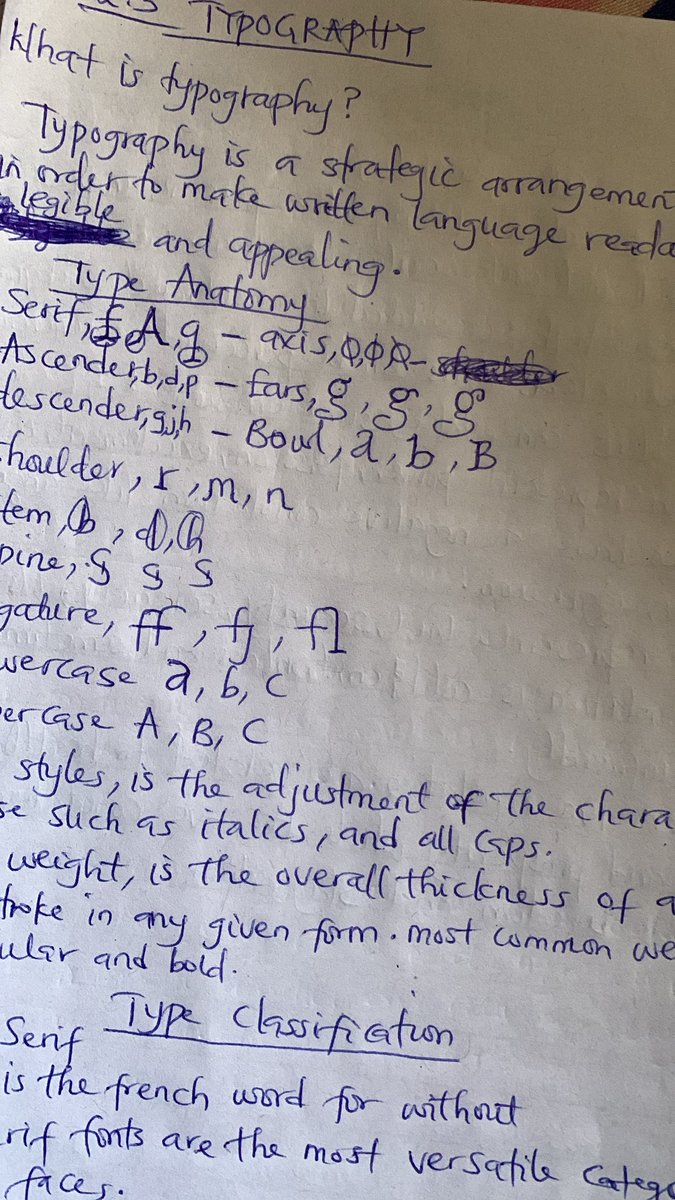 TYPOGRAPHY
What is typography?
Typography is a strategic arrangemen
in order to make written language reada
legible and appealing.
Type Anatomy
Serif, f, A, g - axis, O, O, O -
Ascender, b, d, p - Ears, g, g, g
descender, g, j, h - Bowl, a, b, B
houlder, r, m, n
tem, b, d, h
pine, s s s
gature, ff, fj, fl
wercase a, b, c
ercase A, B, C
styles, is the adjustment of the chara
se such as italics, and all Caps.
weight, is the overall thickness of a
troke in any given form. most common we
ular and bold.
Type Classification
Serif
is the french word for without
rif fonts are the most versatile Catego
faces.